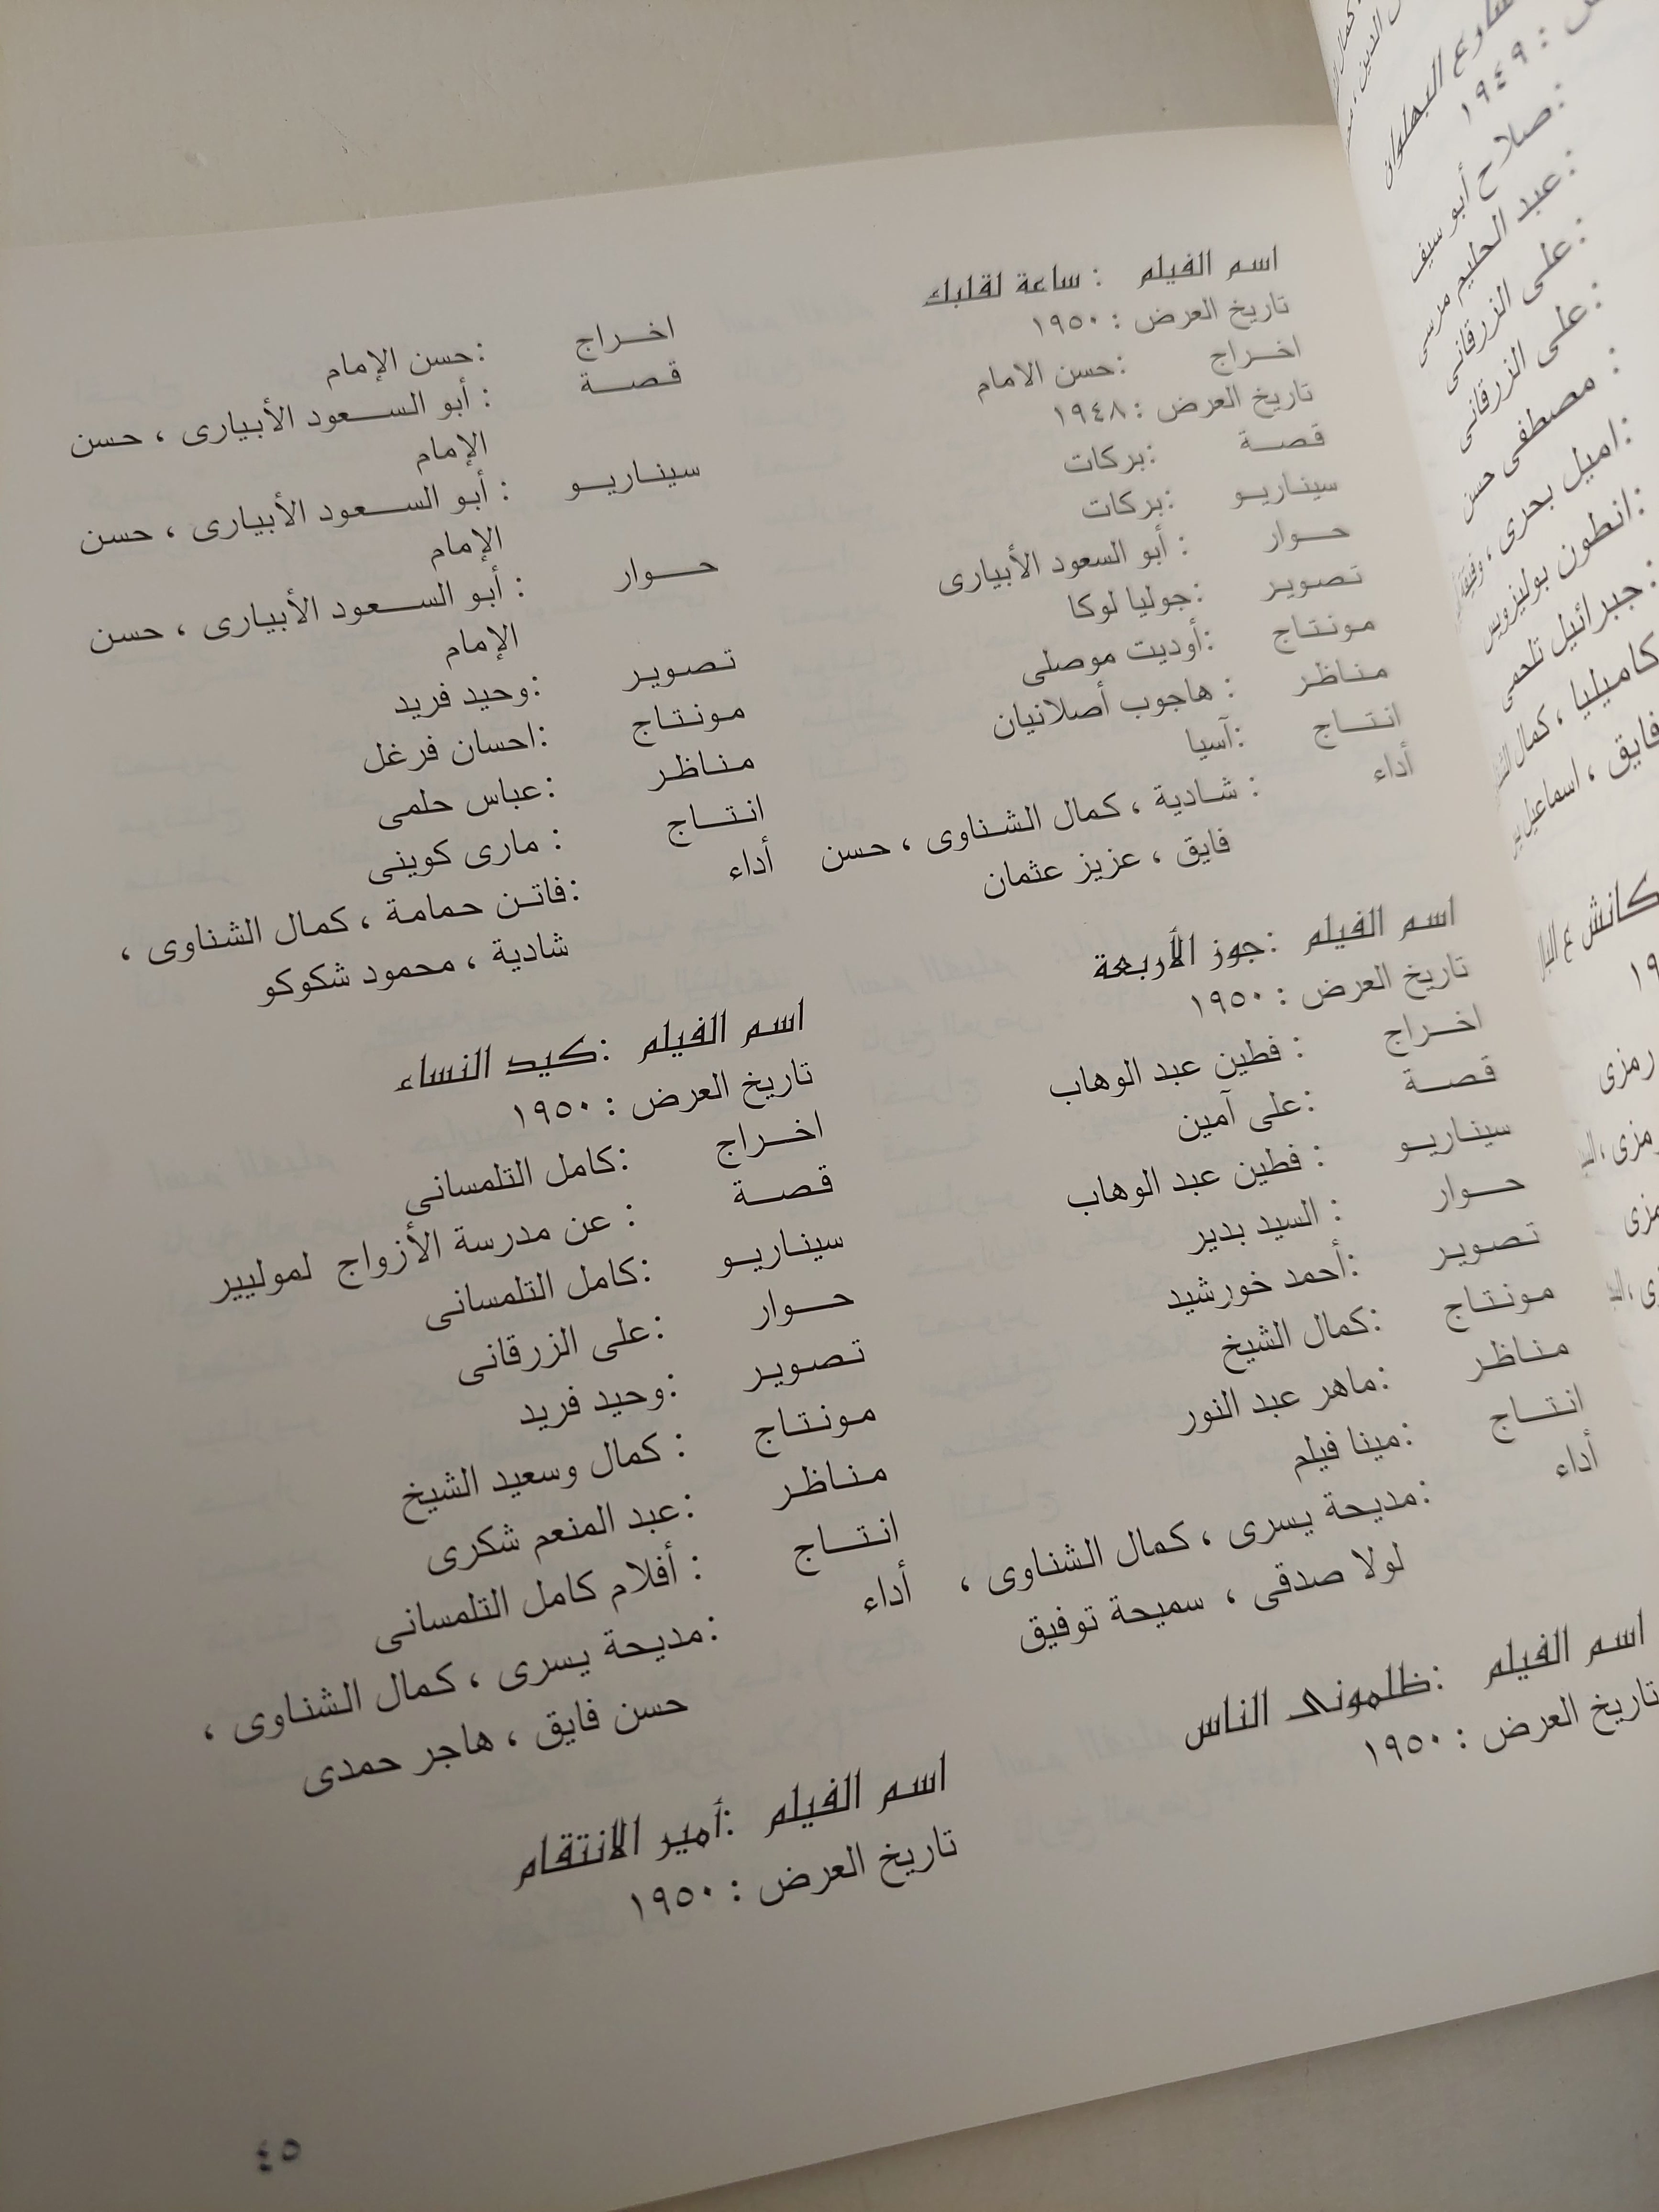 شارع البهلوان
: ١٩٤٩
:صلاح أبو سيف
:عبد الحليم مرسى
:على الزرقانى
:على الزرقانى
: مصطفى حسن
:اميل بحرى ،
:انطون بوليزويس
:جبرائيل تلحمى
كاميليا ، كمال
فايق ، اسماعيل يس
رمزى
اسم الفيلم : ساعة لقلبك
تاريخ العرض : ١٩٥٠
اخـــراج :حسن الامام
تاريخ العرض : ١٩٤٨
قصـــة :بركات
سيناريـو :بركات
حـــوار : أبو السعود الأبيارى
تصويـر :جوليا لوكا
مونتـاج :أوديت موصلى
مناظـر : هاجوب أصلانيان
انتـــاج :آسيا
أداء : شادية ، كمال الشناوى ، حسن
فايق ، عزيز عثمان
اسم الفيلم :جوز الأربعة
تاريخ العرض : ١٩٥٠
اخـــراج : فطين عبد الوهاب
قصـــة :على آمين
سيناريـو : فطين عبد الوهاب
حـــوار : السيد بدير
تصويـر :أحمد خورشيد
مونتـاج :كمال الشيخ
مناظـر :ماهر عبد النور
انتـــاج :مينا فيلم
أداء :مديحة يسرى ، كمال الشناوى ،
لولا صدقى ، سميحة توفيق
اسم الفيلم :ظلمونى الناس
تاريخ العرض : ١٩٥٠
اخـــراج :حسن الإمام
قصـــة : أبو الســـعود الأبيارى ، حسن
الإمام
سيناريـو : أبو الســـعود الأبيارى ، حسن
الإمام
حـــوار : أبو الســـعود الأبيارى ، حسن
الإمام
تصويـر :وحيد فريد
مونتـاج :احسان فرغل
مناظـر :عباس حلمى
انتـــاج : مارى كوينى
أداء :فاتن حمامة ، كمال الشناوى ،
شادية ، محمود شكوكو
اسم الفيلم :كيد النساء
تاريخ العرض : ١٩٥٠
اخـــراج :كامل التلمسانى
قصـــة : عن مدرسة الأزواج لموليير
سيناريـو :كامل التلمسانى
حـــوار :على الزرقانى
تصويـر :وحيد فريد
مونتـاج : كمال وسعيد الشيخ
مناظـر :عبد المنعم شكرى
انتـــاج : أفلام كامل التلمسانى
أداء :مديحة يسرى ، كمال الشناوى ،
حسن فايق ، هاجر حمدى
اسم الفيلم :أمير الانتقام
تاريخ العرض : ١٩٥٠
٤٥